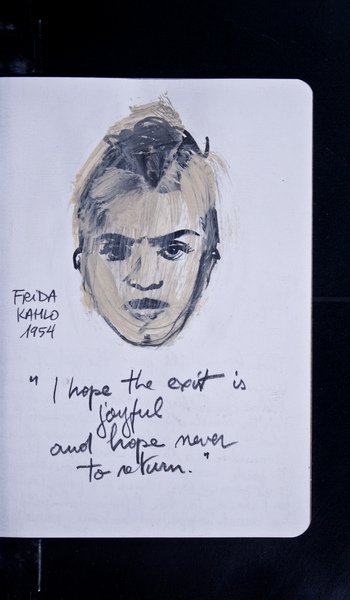 FRIDA
KAHLO
1954
" I hope the exit is
joyful
and hope never
to return. "